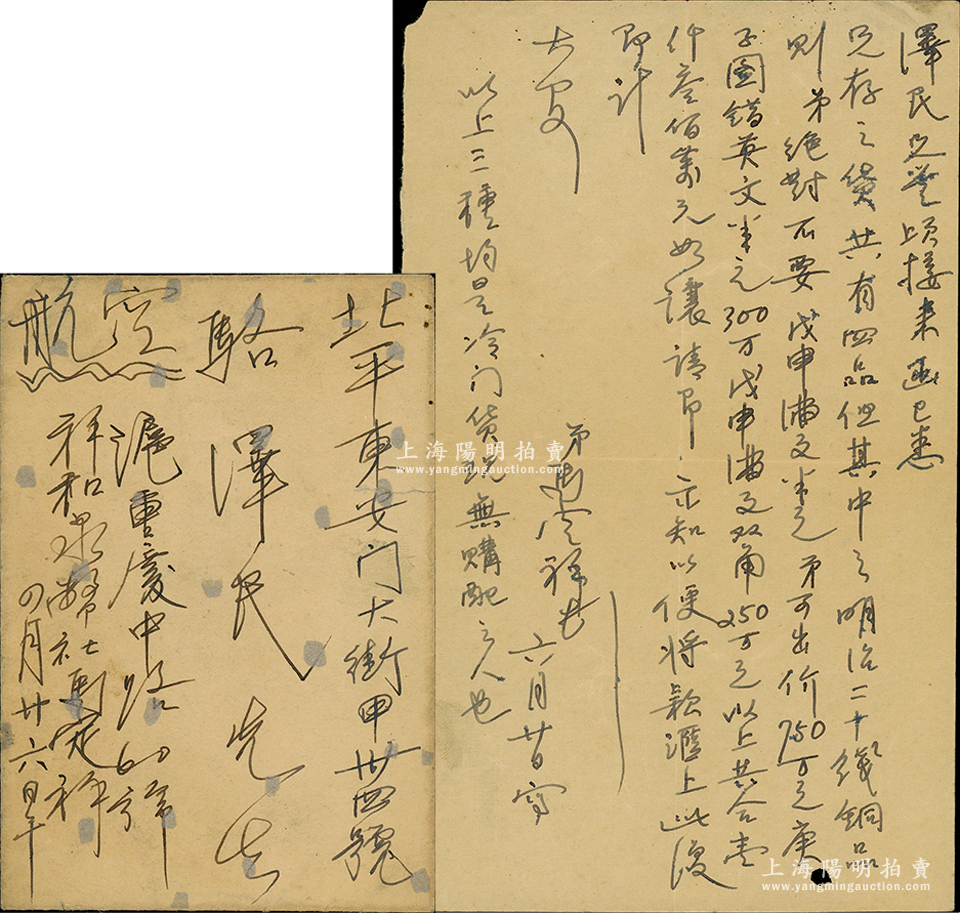 澤民兄鑒頃接来函已悉
兄存之貨共有四品但其中之明治二十錢銅品
则弟绝對不要戊申満文半元弟可出价750万元庚
子图錯英文半元300万戊申满文双角250万元以上共合壹
仟叁佰萬元如讓請即示知以便将款滙上此復
即計
大安
弟馬定祥上
六月廿日寫
以上三種均是冷门貨現無購配之人也
北平東安门大街甲卅四號
駱澤民先生
航空
滬重慶中路60号
祥和泉幣社馬定祥
四月廿六日午
上海陽明拍賣
www.yangmingauction.com
上海陽明拍賣
www.yangmingauction.com